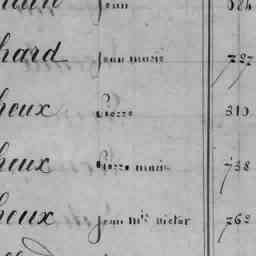 Jean 324
hard Jean marie 727
heux Pierre 310
heux Pierre marie 738
heux Jean mie victor 762